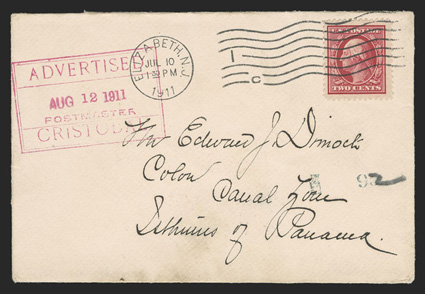 ELIZABETH, N.J.
JUL 10
1911
1
C
U.S. POSTAGE
TWO CENTS
ADVERTISED
AUG 12 1911
POSTMASTER
CRISTOBAL
Mr Edward J. Dimock
Colon
Canal Zone
Isthmus of Panama.